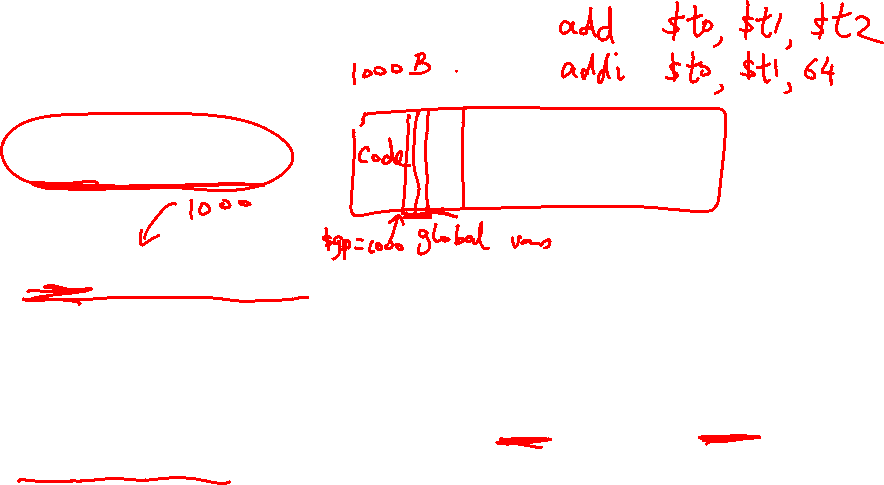 add $t0, $t1, $t2
addi $t0, $t1, 64
1000 B.
Code
1000
$gp=1000 global vars